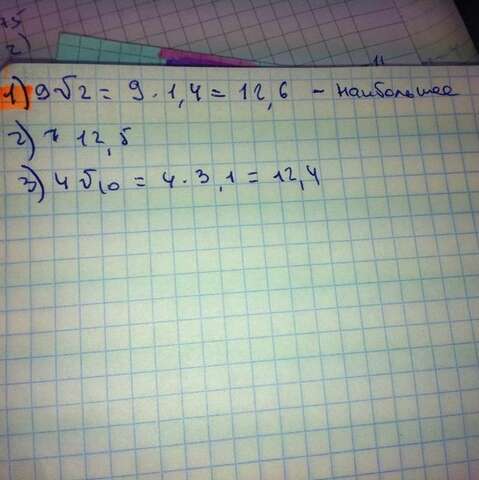 75
2)
1) 9√2 = 9 · 1,4 = 12,6 - наибольшее
2) 12,5
3) 4√10 = 4 · 3,1 = 12,4